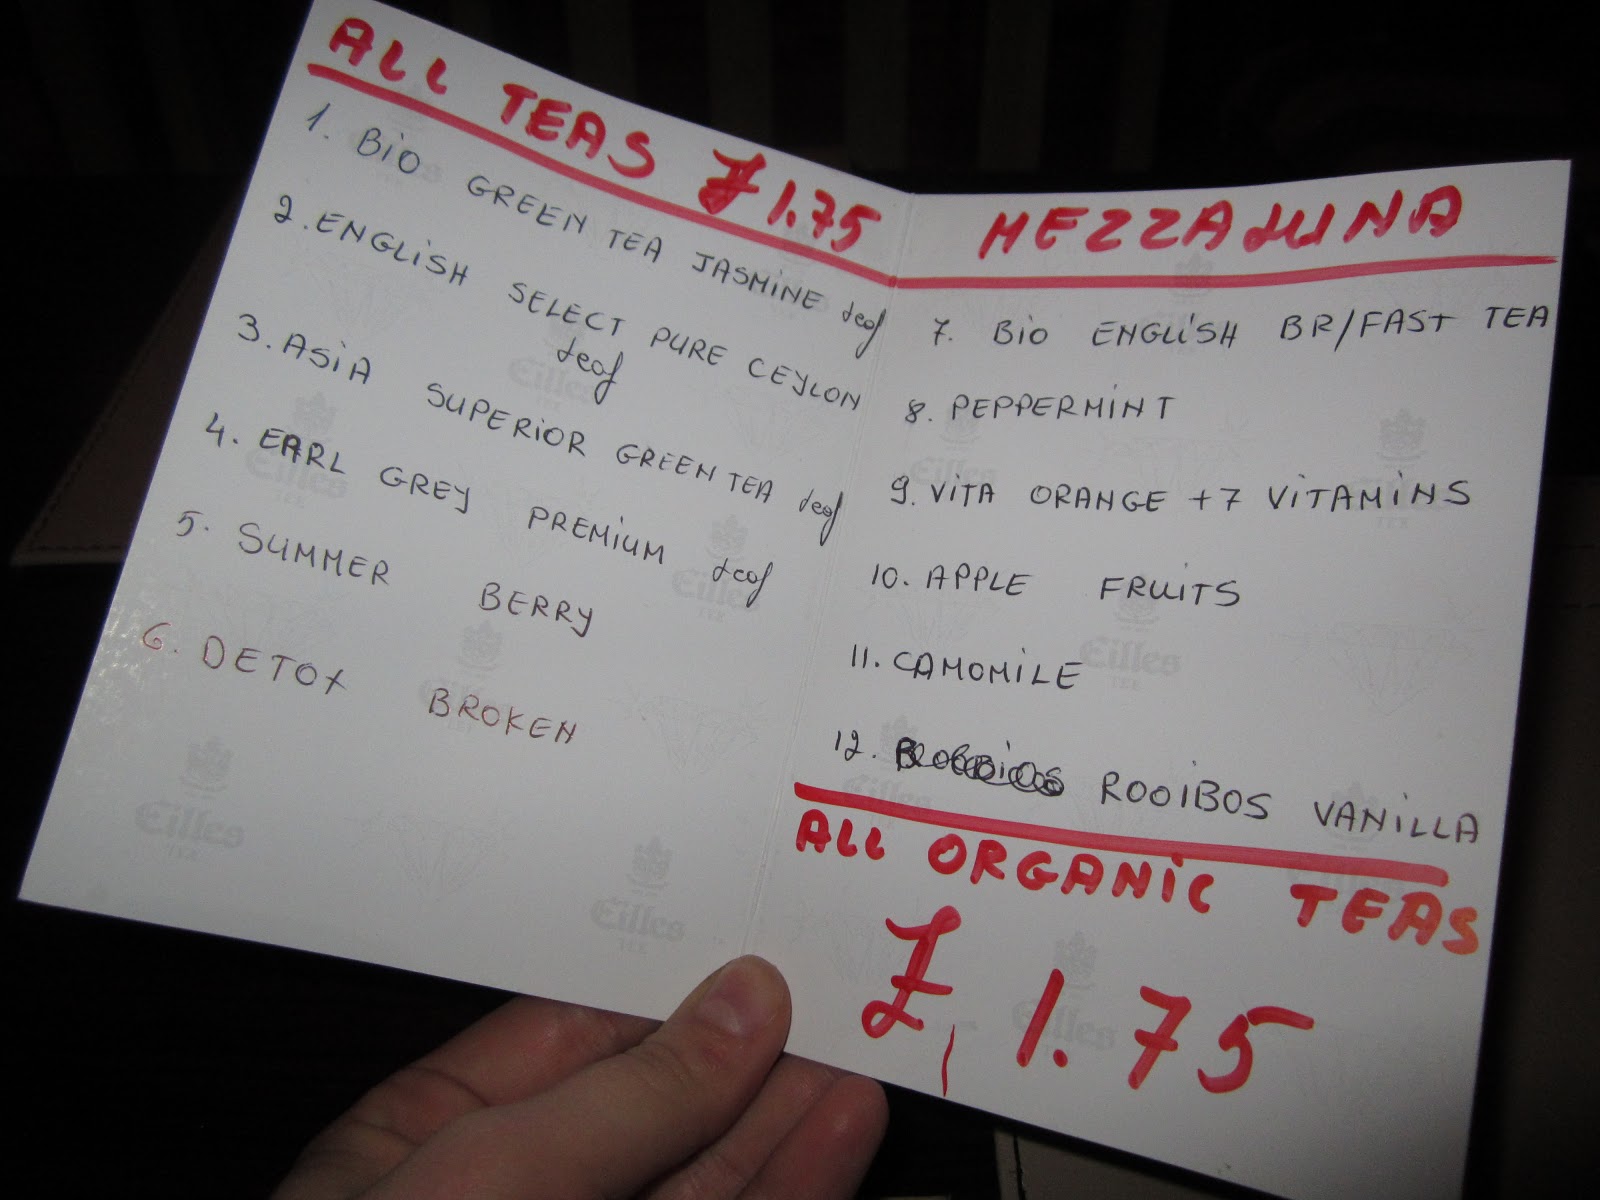 ALL TEAS £1.75
1. BiO GREEN TEA JASMiNE leaf
2. ENGLiSH SELECT PURE CEYLON
leaf
3. ASiA SUPERiOR GREEN TEA leaf
4. EARL GREY PREMiUM leaf
5. SUMMER BERRY
6. DETOX BROKEN
MEZZALUNA
7. BiO ENGLiSH BR/FAST TEA
8. PEPPERMiNT
9. ViTA ORANGE +7 ViTAMiNS
10. APPLE FRUiTS
11. CAMOMiLE
12. ROOiBOS VANiLLA
ALL ORGANiC TEAS
£1.75
Eilles
TEE